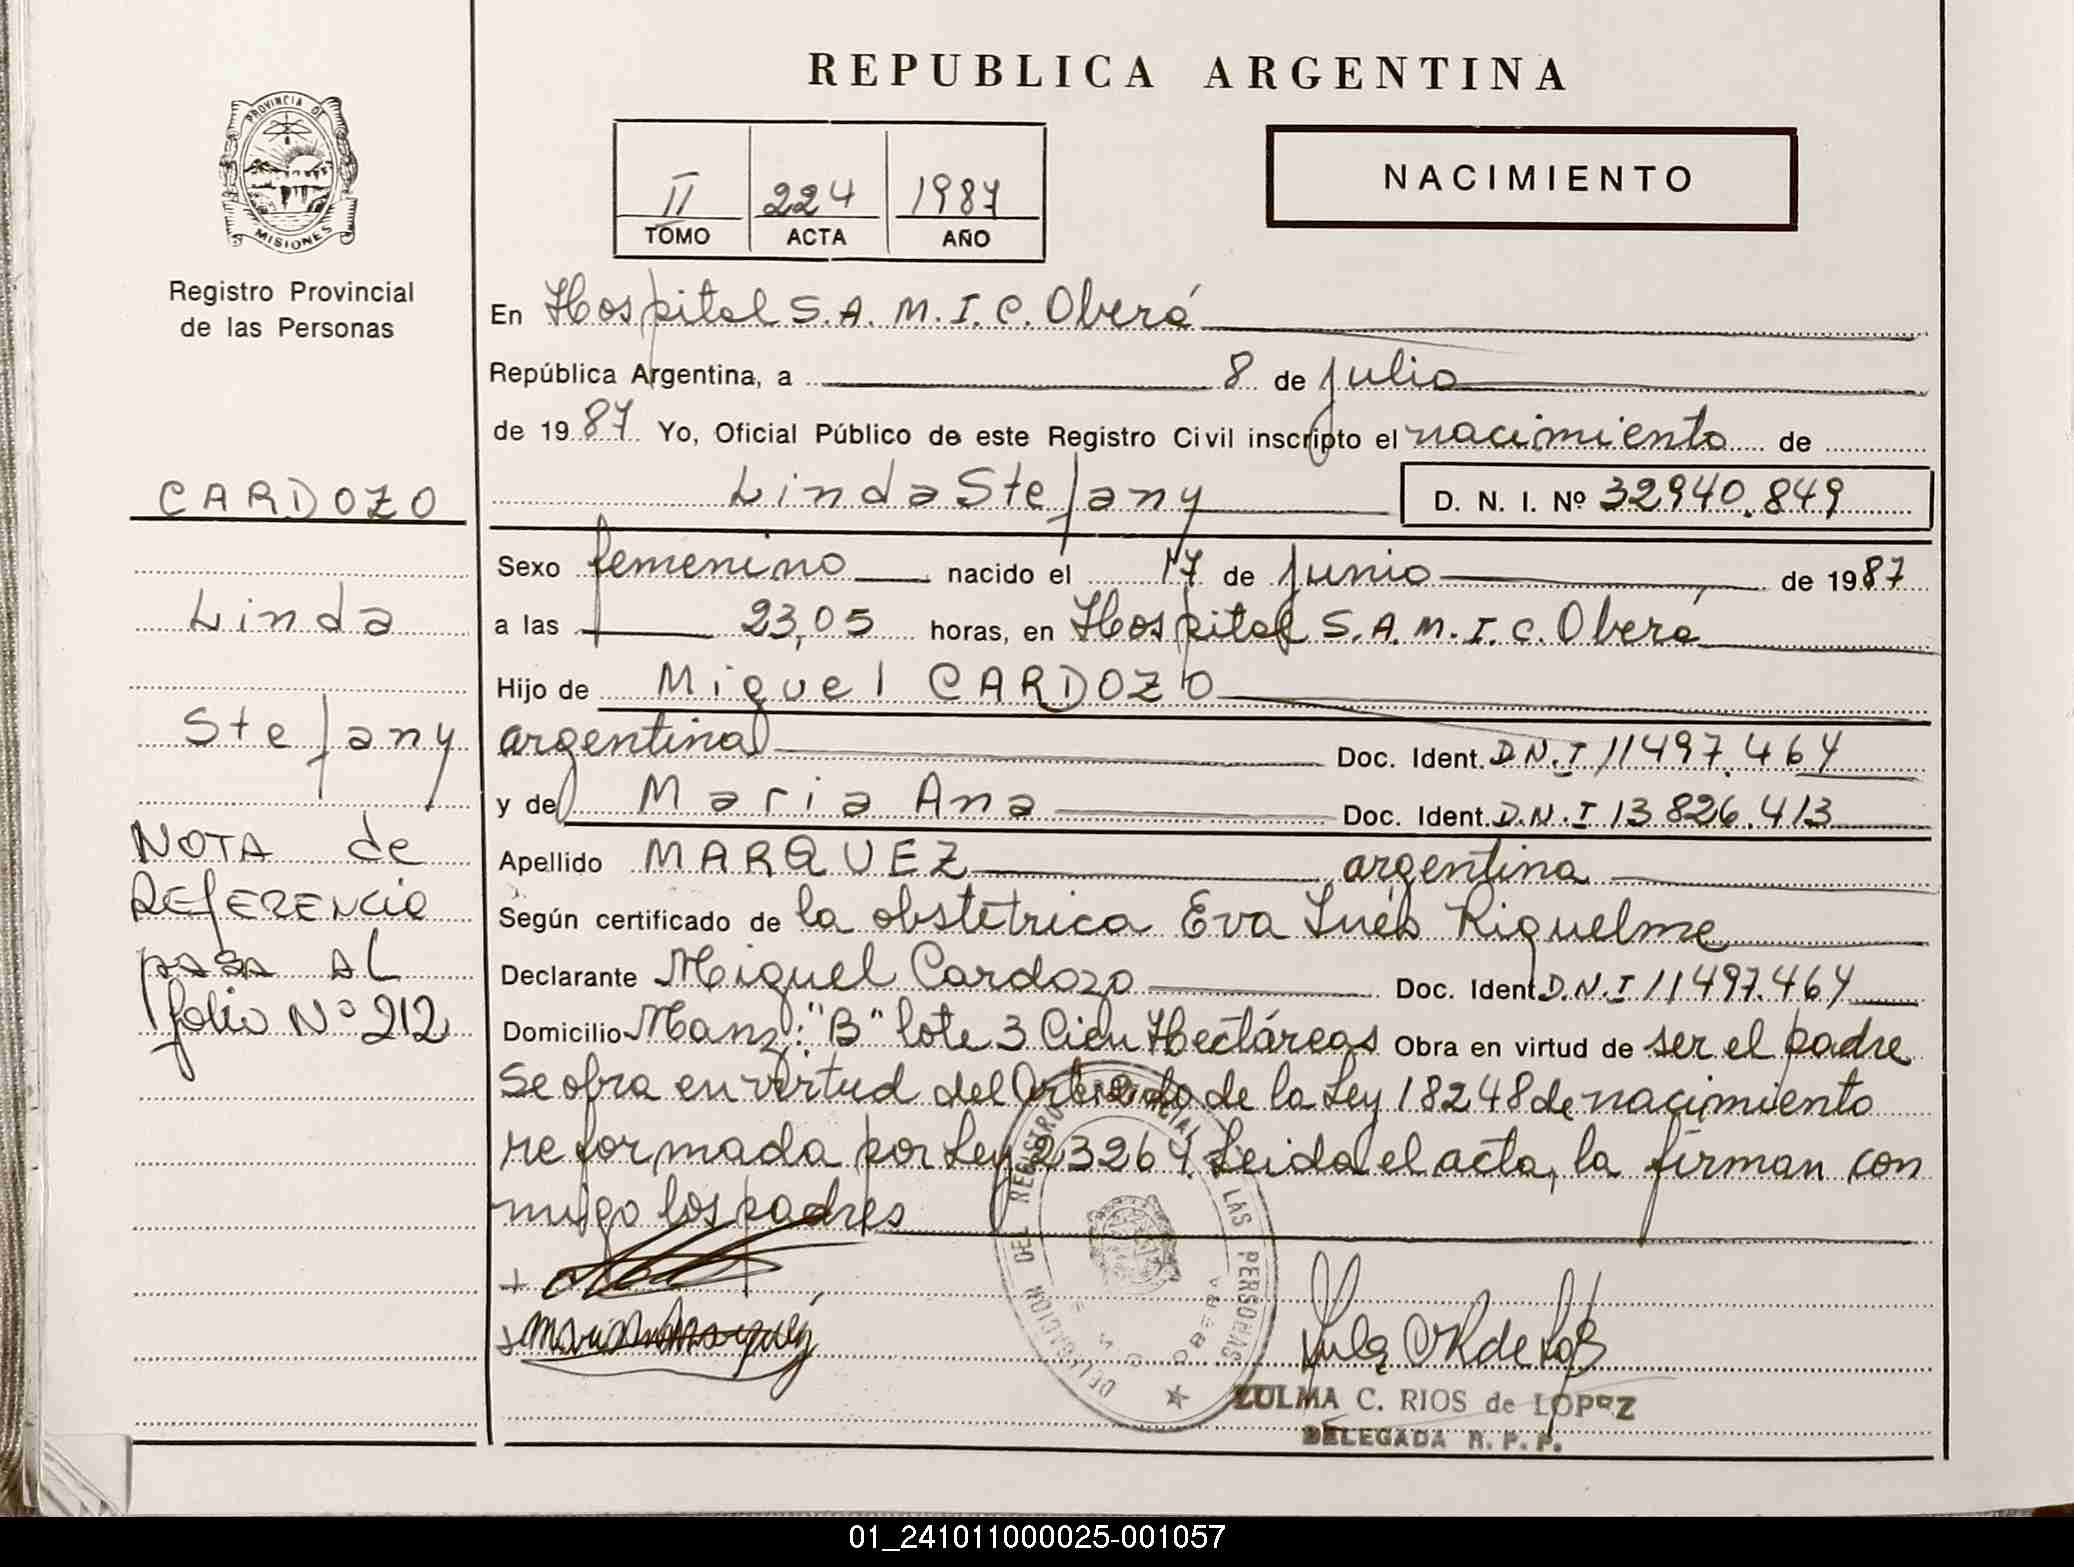 REPUBLICA ARGENTINA
PROVINCIA DE
MISIONES
Registro Provincial
de las Personas
II 224 1987
TOMO ACTA AÑO
NACIMIENTO
En Hospital S.A.M.I.C. Oberá
República Argentina, a 8 de julio
de 1987 Yo, Oficial Público de este Registro Civil inscripto el nacimiento de
Linda Stefany D. N. I. Nº 32940.849
Sexo femenino nacido el 17 de junio de 1987
a las 23,05 horas, en Hospital S.A.M.I.C. Oberá
Hijo de Miguel CARDOZO
argentina Doc. Ident. D.N.I 11497.464
y de Maria Ana Doc. Ident. D.N.I 13826.413
Apellido MARQUEZ argentina
Según certificado de la obstetrica Eva Inés Riquelme
Declarante Miguel Cardozo Doc. Ident. D.N.I 11497.464
Domicilio Manz: "B" lote 3 Cien Hectáreas Obra en virtud de ser el padre
Se obra en virtud del de la Ley 18248 de nacimiento
reformada por Ley 23264 Leida el acta, la firman con
migo los padres
CARDOZO
Linda
Stefany
NOTA de
REFERENCIA
PASA AL
folio Nº 212
DELEGACION DEL REGISTRO PROVINCIAL DE LAS PERSONAS
OBERA
Maria Ana Marquez
ZULMA C. RIOS de LOPEZ
DELEGADA R. P. P.
01_241011000025-001057